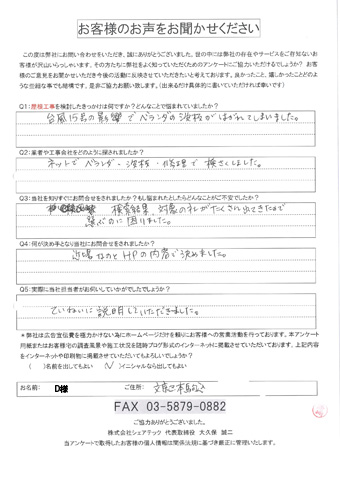 お客様のお声をお聞かせください
この度は弊社にお問い合わせをいただき、誠にありがとうございました。世の中には弊社の存在やサービスをご存知ないお
客様が沢山いらっしゃいます。その方たちに弊社をよく知っていただくためのアンケートにご協力いただけるでしょうか？お客
様のご意見をお聞かせいただき今後の活動に反映させていただきたいと考えております。良かったこと、嬉しかったことどのよ
うな些細な事でも結構です、是非ご協力お願い致します。（出来るだけ具体的に書いていただければ幸いです）
Q1：屋根工事を検討したきっかけは何ですか？どんなことで悩まれていましたか？
台風15号の影響でベランダの波板がはがれてしまいました。
Q2：業者や工事会社をどのように探されましたか？
ネットでベランダ・波板・修理で検さくしました。
Q3：当社を知りすぐにお問合わせをされましたか？もし悩まれたとしたらどんなことがご不安でしたか？
検索結果、対象の社がたくさん出てきたので
選ぶのに困りました。
Q4：何が決め手となり当社にお問合せをされましたか？
近場なのとHPの内容で決めました。
Q5：実際に当社担当者がお伺いしていかがでしたでしょうか？
ていねいに説明していただきました。
＊弊社は広告宣伝費を極力かけない為にホームページだけを頼りにお客様への営業活動を行っております。本アンケート
用紙またはお客様宅の調査風景や施工状況を随時ブログ形式のインターネットに掲載させていただいております。上記内容
をインターネットや印刷物に掲載させていただいてもよろしいでしょうか？
（　）名前を出してもよい　（✓）イニシャルなら出してもよい
お名前：　D様　ご住所：　文京区
FAX 03-5879-0882
ご協力ありがとうございました。
株式会社シェアテック 代表取締役 大久保 誠二
当アンケートで取得したお客様の個人情報は関係法規に基づき厳正に管理いたします。